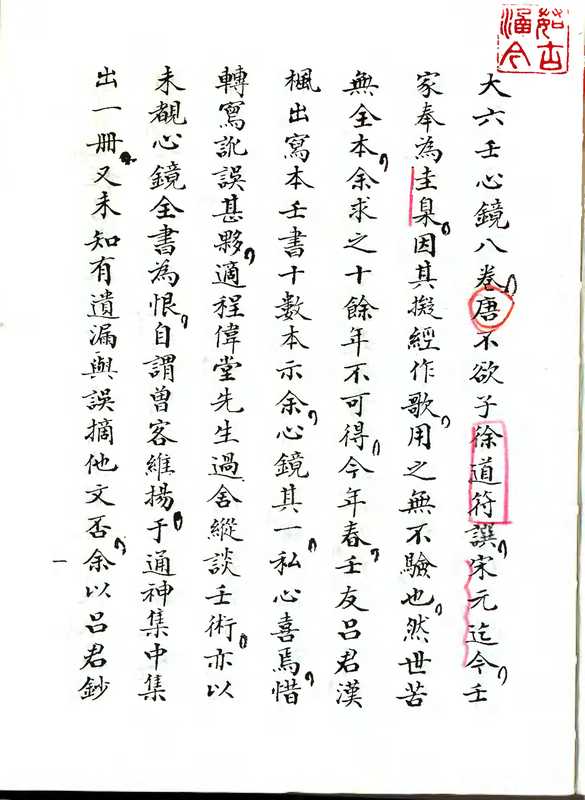 大六壬心鏡八卷唐不欲子徐道符譔宋元迄今壬
家奉為圭臬因其擬經作歌用之無不驗也然世苦
無全本余求之十餘年不可得今年春壬友呂君漢
楓出寫本壬書十數本示余心鏡其一私心喜焉惜
轉寫訛誤甚夥適程偉堂先生過舍縱談壬術亦以
未覩心鏡全書為恨自謂曽客維揚于通神集中集
出一冊又未知有遺漏與誤摘他文否余以呂君鈔
一
茹古
涵今